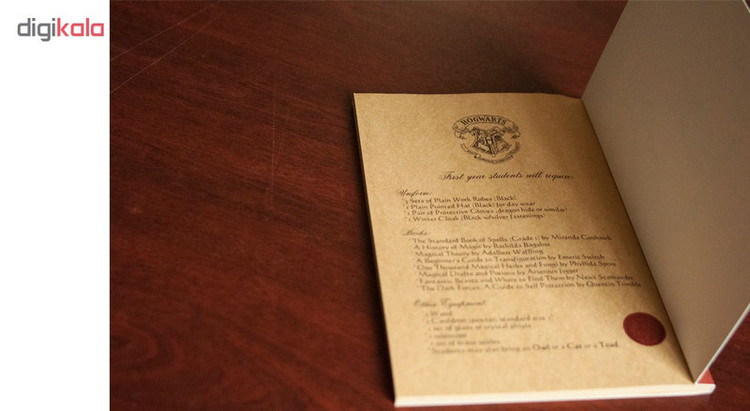 digikala
HOGWARTS
First year students will require:
Uniform:
3 Sets of Plain Work Robes (Black)
1 Plain Pointed Hat (Black) for day wear
1 Pair of Protective Gloves (dragon hide or similar)
1 Winter Cloak (Black, silver fastenings)
Books:
The Standard Book of Spells (Grade 1) by Miranda Goshawk
A History of Magic by Bathilda Bagshot
Magical Theory by Adalbert Waffling
A Beginner's Guide to Transfiguration by Emeric Switch
One Thousand Magical Herbs and Fungi by Phyllida Spore
Magical Drafts and Potions by Arsenius Jigger
Fantastic Beasts and Where to Find Them by Newt Scamander
The Dark Forces: A Guide to Self Protection by Quentin Trimble
Other Equipment:
1 Wand
1 Cauldron (pewter, standard size 2)
1 set of glass or crystal phials
1 telescope
1 set of brass scales
Students may also bring an Owl or a Cat or a Toad